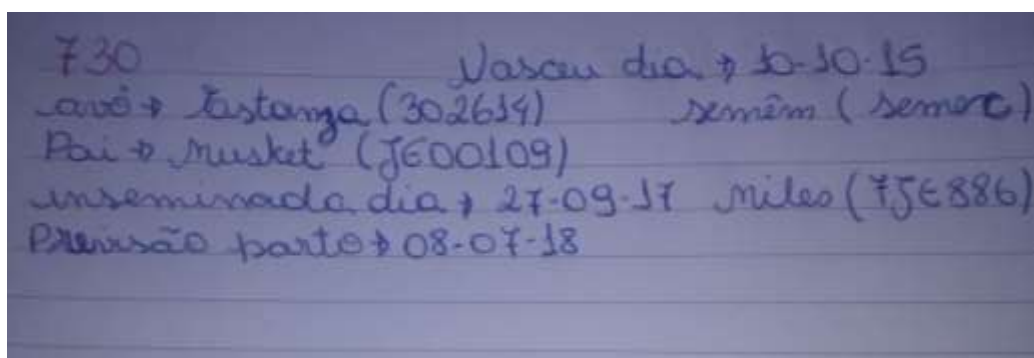 730 Nasceu dia → 10-10-15
avô → Tastanga (302614) semêm (Semerc)
Pai → Musket (JE00109)
inseminada dia → 27-09-17 Miles (7JE886)
Previsão parto → 08-07-18